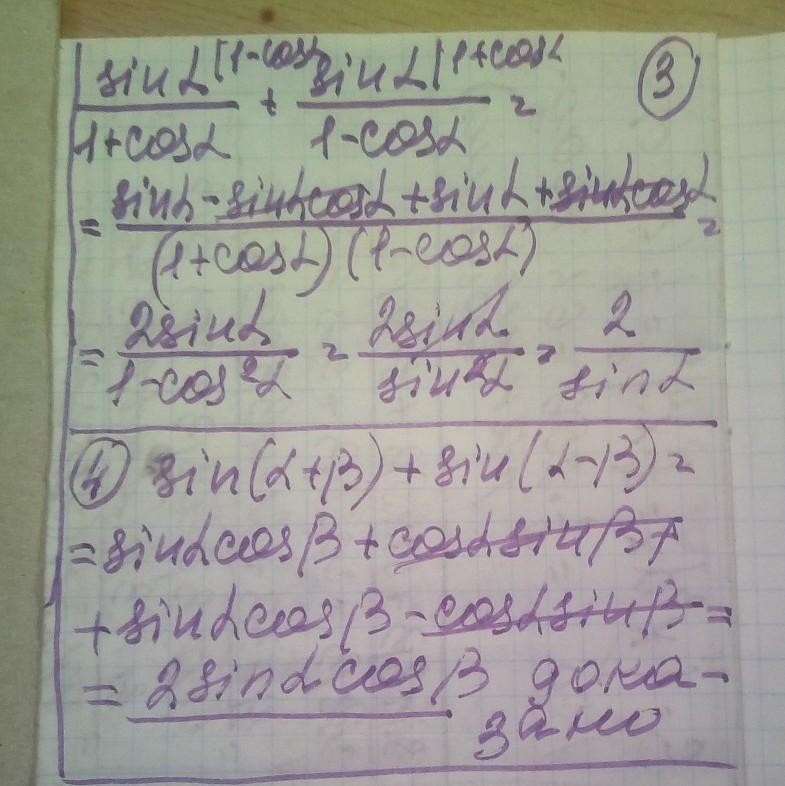 sinα|1-cosα + sinα|1+cosα = ③
1+cosα 1-cosα
= sinα - sinαcosα + sinα + sinαcosα =
(1+cosα)(1-cosα)
= 2sinα = 2sinα = 2
1-cos²α sin²α sinα
④ sin(α+β) + sin(α-β) =
= sinαcosβ + cosαsinβ +
+ sinαcosβ - cosαsinβ =
= 2sinαcosβ дока-
зано